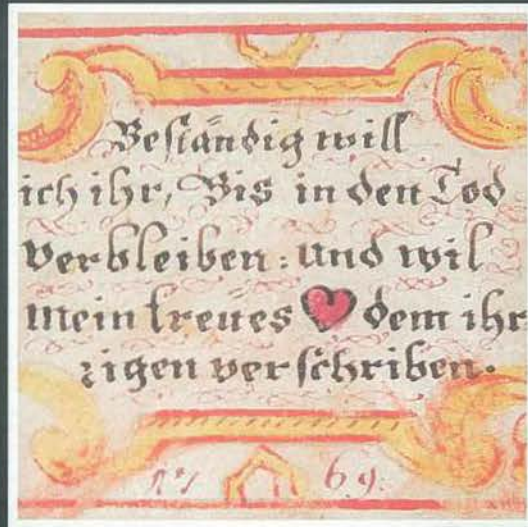 Beſtändig will
ich ihr, Bis in den Tod
verbleiben: und wil
mein treües dem ihr
zigen verſchriben.
69.